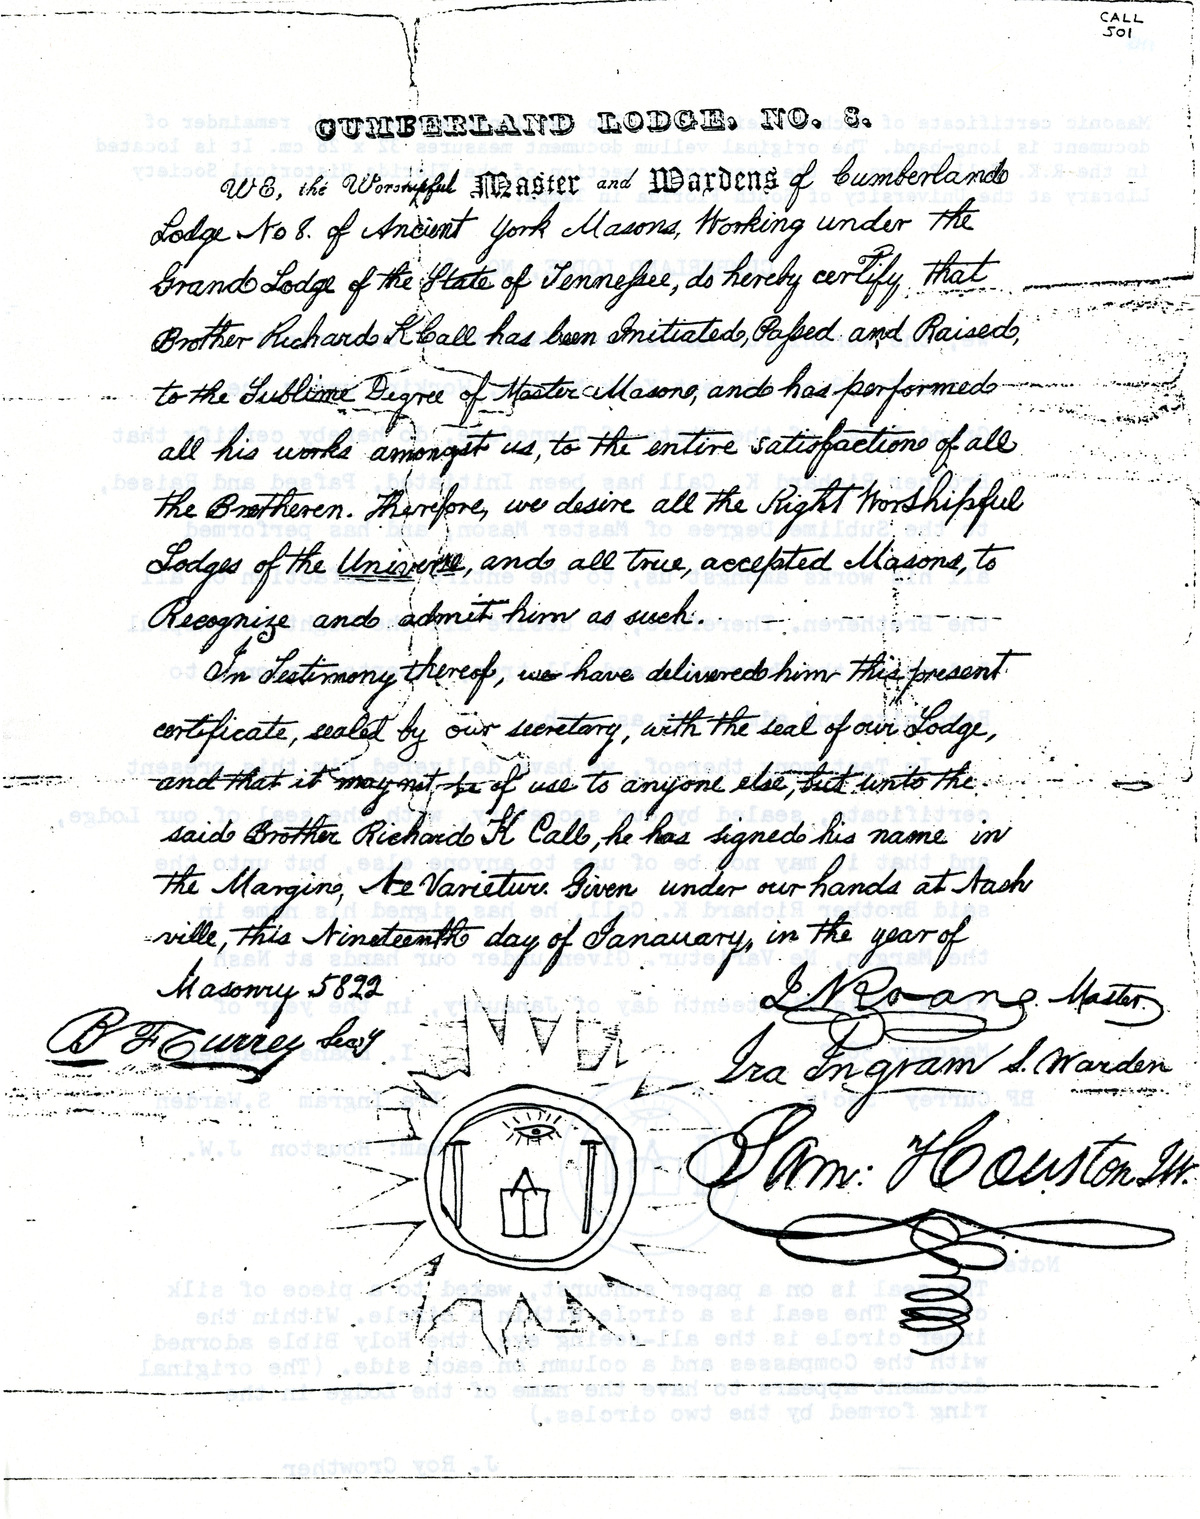 CALL
501
CUMBERLAND LODGE, NO. 8.
WE, the Worshipful Master and Wardens of Cumberland
Lodge No 8. of Ancient York Masons, Working under the
Grand Lodge of the State of Tennessee, do hereby certify that
Brother Richard K Call has been Initiated, Passed and Raised,
to the Sublime Degree of Master Mason, and has performed
all his works amongst us, to the entire satisfaction of all
the Bretheren. Therefore, we desire all the Right Worshipful
Lodges of the Universe, and all true, accepted Masons, to
Recognize and admit him as such.
In Testimony thereof, we have delivered him this present
certificate, sealed by our secretary, with the seal of our Lodge,
and that it may not be of use to anyone else, but unto the
said Brother Richard K Call, he has signed his name in
the Margin, Ne Varietur. Given under our hands at Nash
ville, this Nineteenth day of Janauary, in the year of
Masonry 5822
I N Roane. Master.
B F Currey Sec'y
Ira Ingram S. Warden
Sam: Houston J.W.